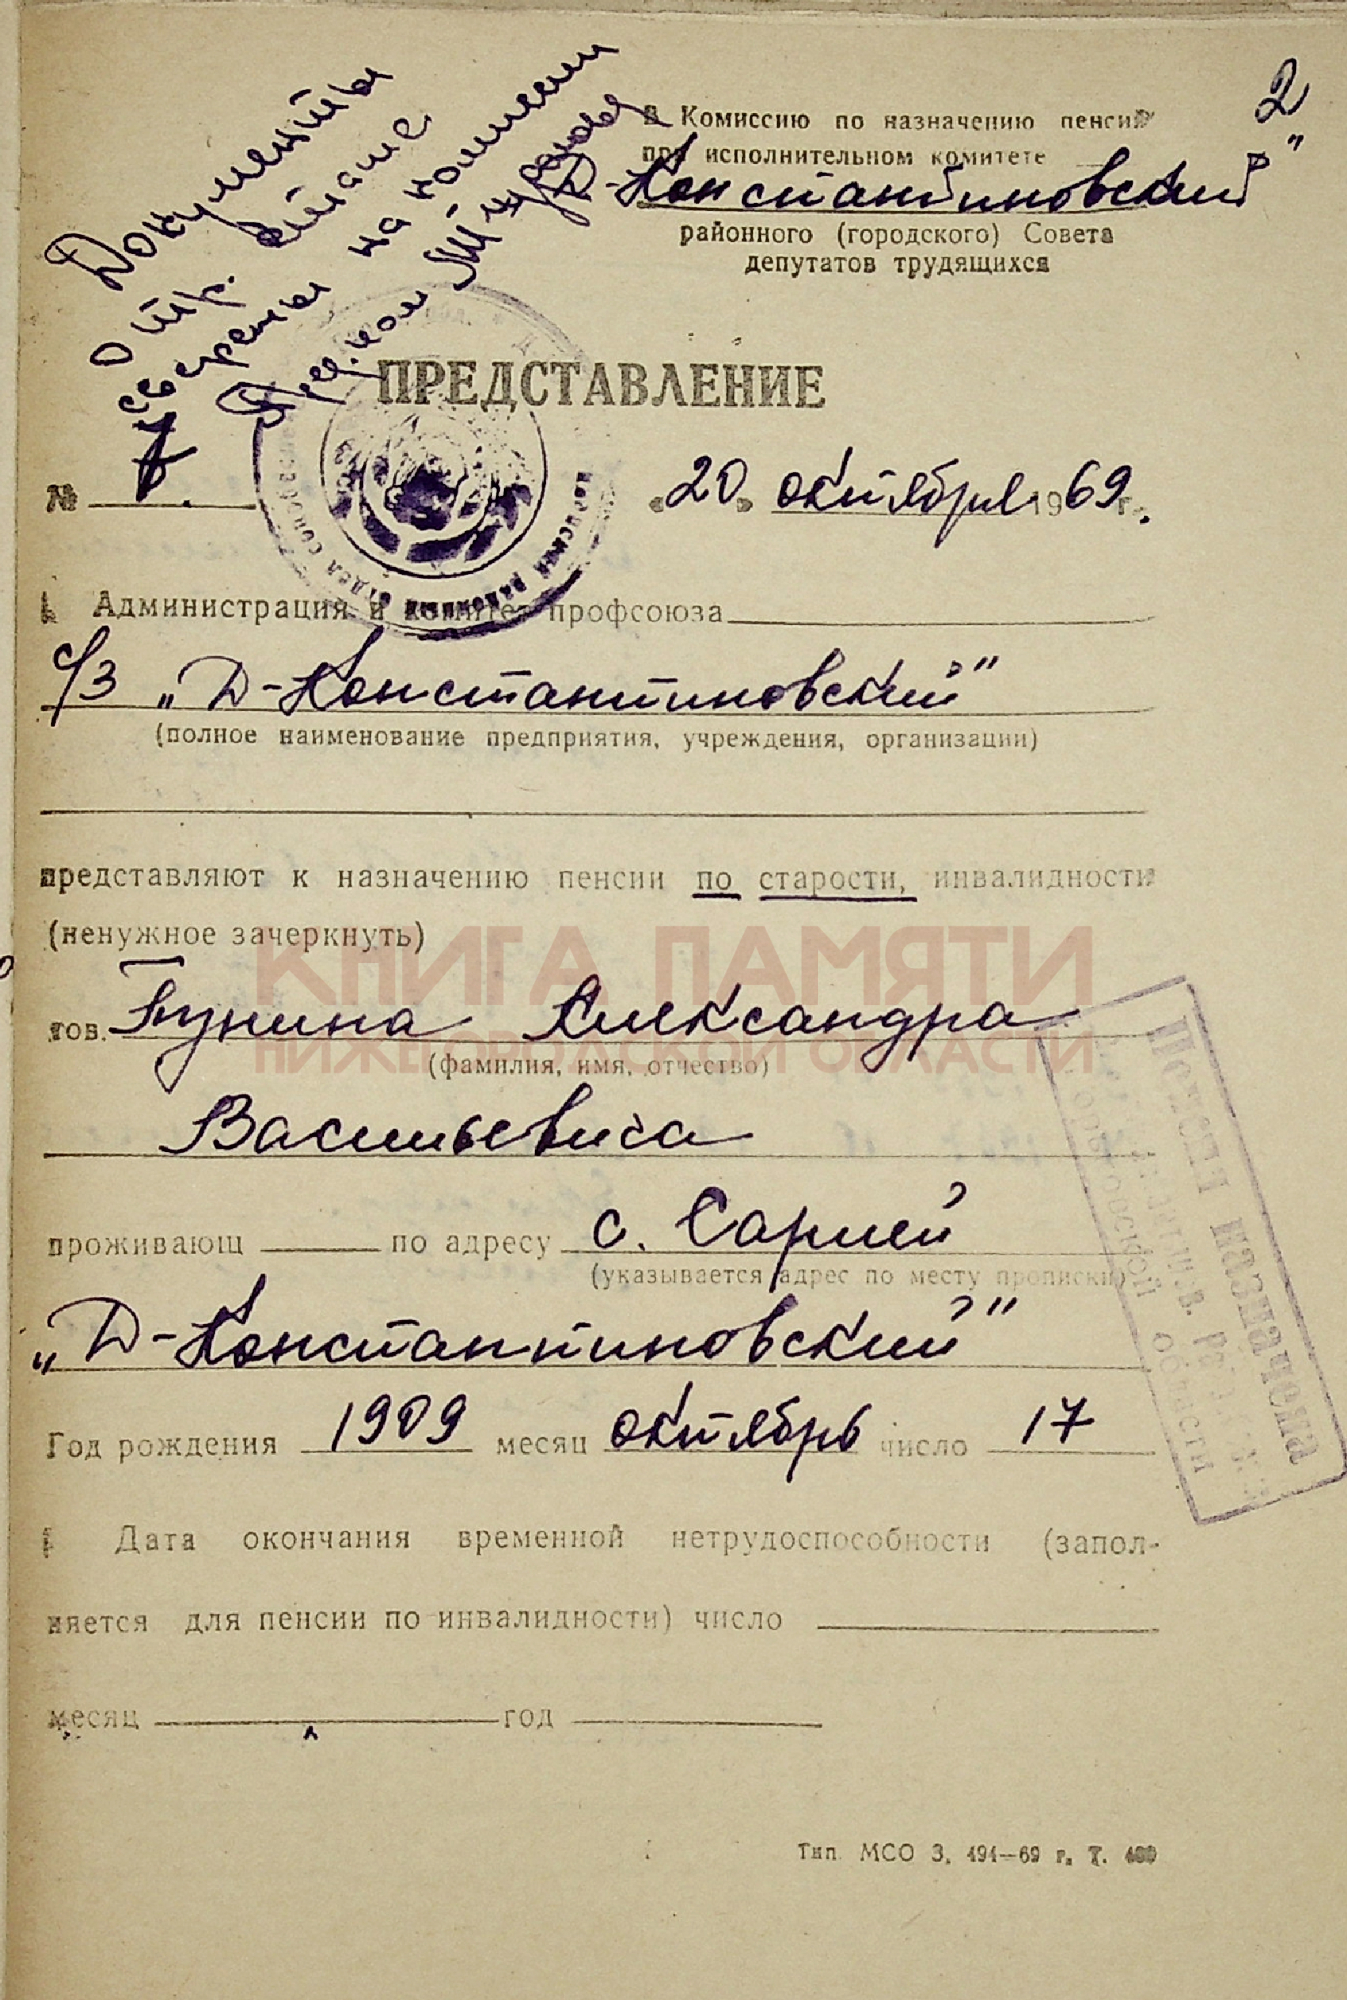 2
В Комиссию по назначению пенсий
при исполнительном комитете
Д-Константиновский"
районного (городского) Совета
депутатов трудящихся
Документы
о тр. стаже
сверены на комиссии
Пред. ком
ПРЕДСТАВЛЕНИЕ
№ „20" октября 1969 г.
районный отдел
Администрация и комитет профсоюза
с/з „Д-Константиновский"
(полное наименование предприятия, учреждения, организации)
представляют к назначению пенсии по старости, инвалидности
(ненужное зачеркнуть)
КНИГА ПАМЯТИ
НИЖЕГОРОДСКОЙ ОБЛАСТИ
тов. Бунина Александра
(фамилия, имя, отчество)
Васильевича
проживающ по адресу с. Сарлей
(указывается адрес по месту прописки)
„Д-Константиновский"
Год рождения 1909 месяц октябрь число 17
Пенсия назначена
Горьковской области
Дата окончания временной нетрудоспособности (запол-
няется для пенсии по инвалидности) число
месяц год
Тип. МСО З. 494—69 г. Т. 400